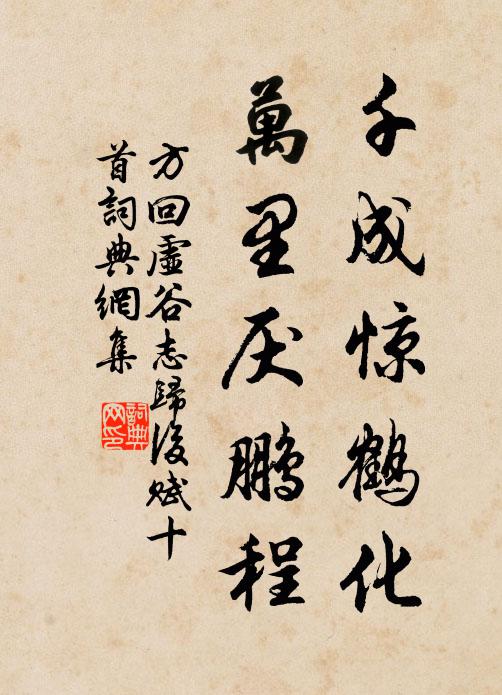 千成惊鶴化
萬里厌鵬程
方回虛谷志歸後賦十
首詞典網集
詞典网印